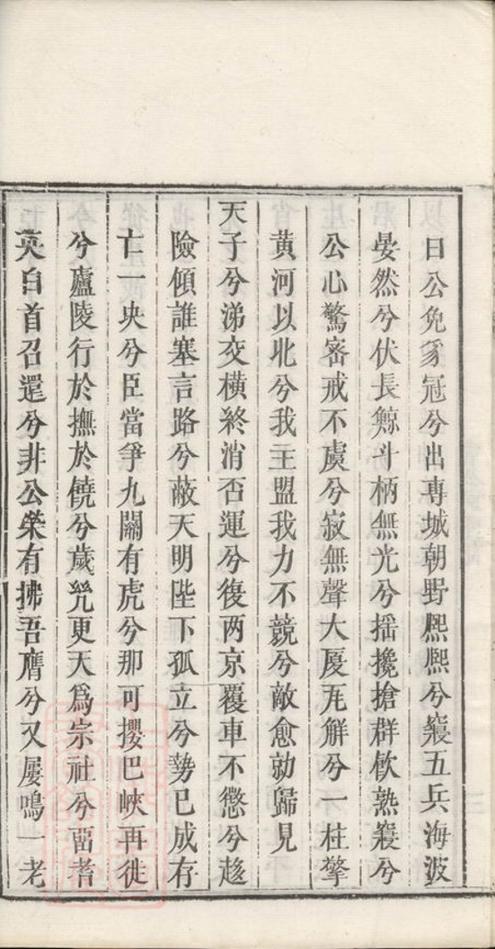 日公免豸冠兮出専城朝野熈熈兮寢五兵海波
晏然兮伏長鯨斗柄無光兮揺攙搶群飲熟寢兮
公心驚密戒不虞兮寂無聲大厦瓦解兮一柱擎
黄河以北兮我主盟我力不競兮敵愈勍歸見
天子兮涕交橫終消否運兮復两京覆車不懲兮趍
險傾誰塞言路兮蔽天明陛下孤立兮勢已成存
亡一央兮臣當爭九關有虎兮那可攖巴峽再徙
兮廬陵行於撫於饒兮歲㡬更天爲宗社兮畱耆
英白首召還兮非公榮有拂吾膺兮又屢鳴一老